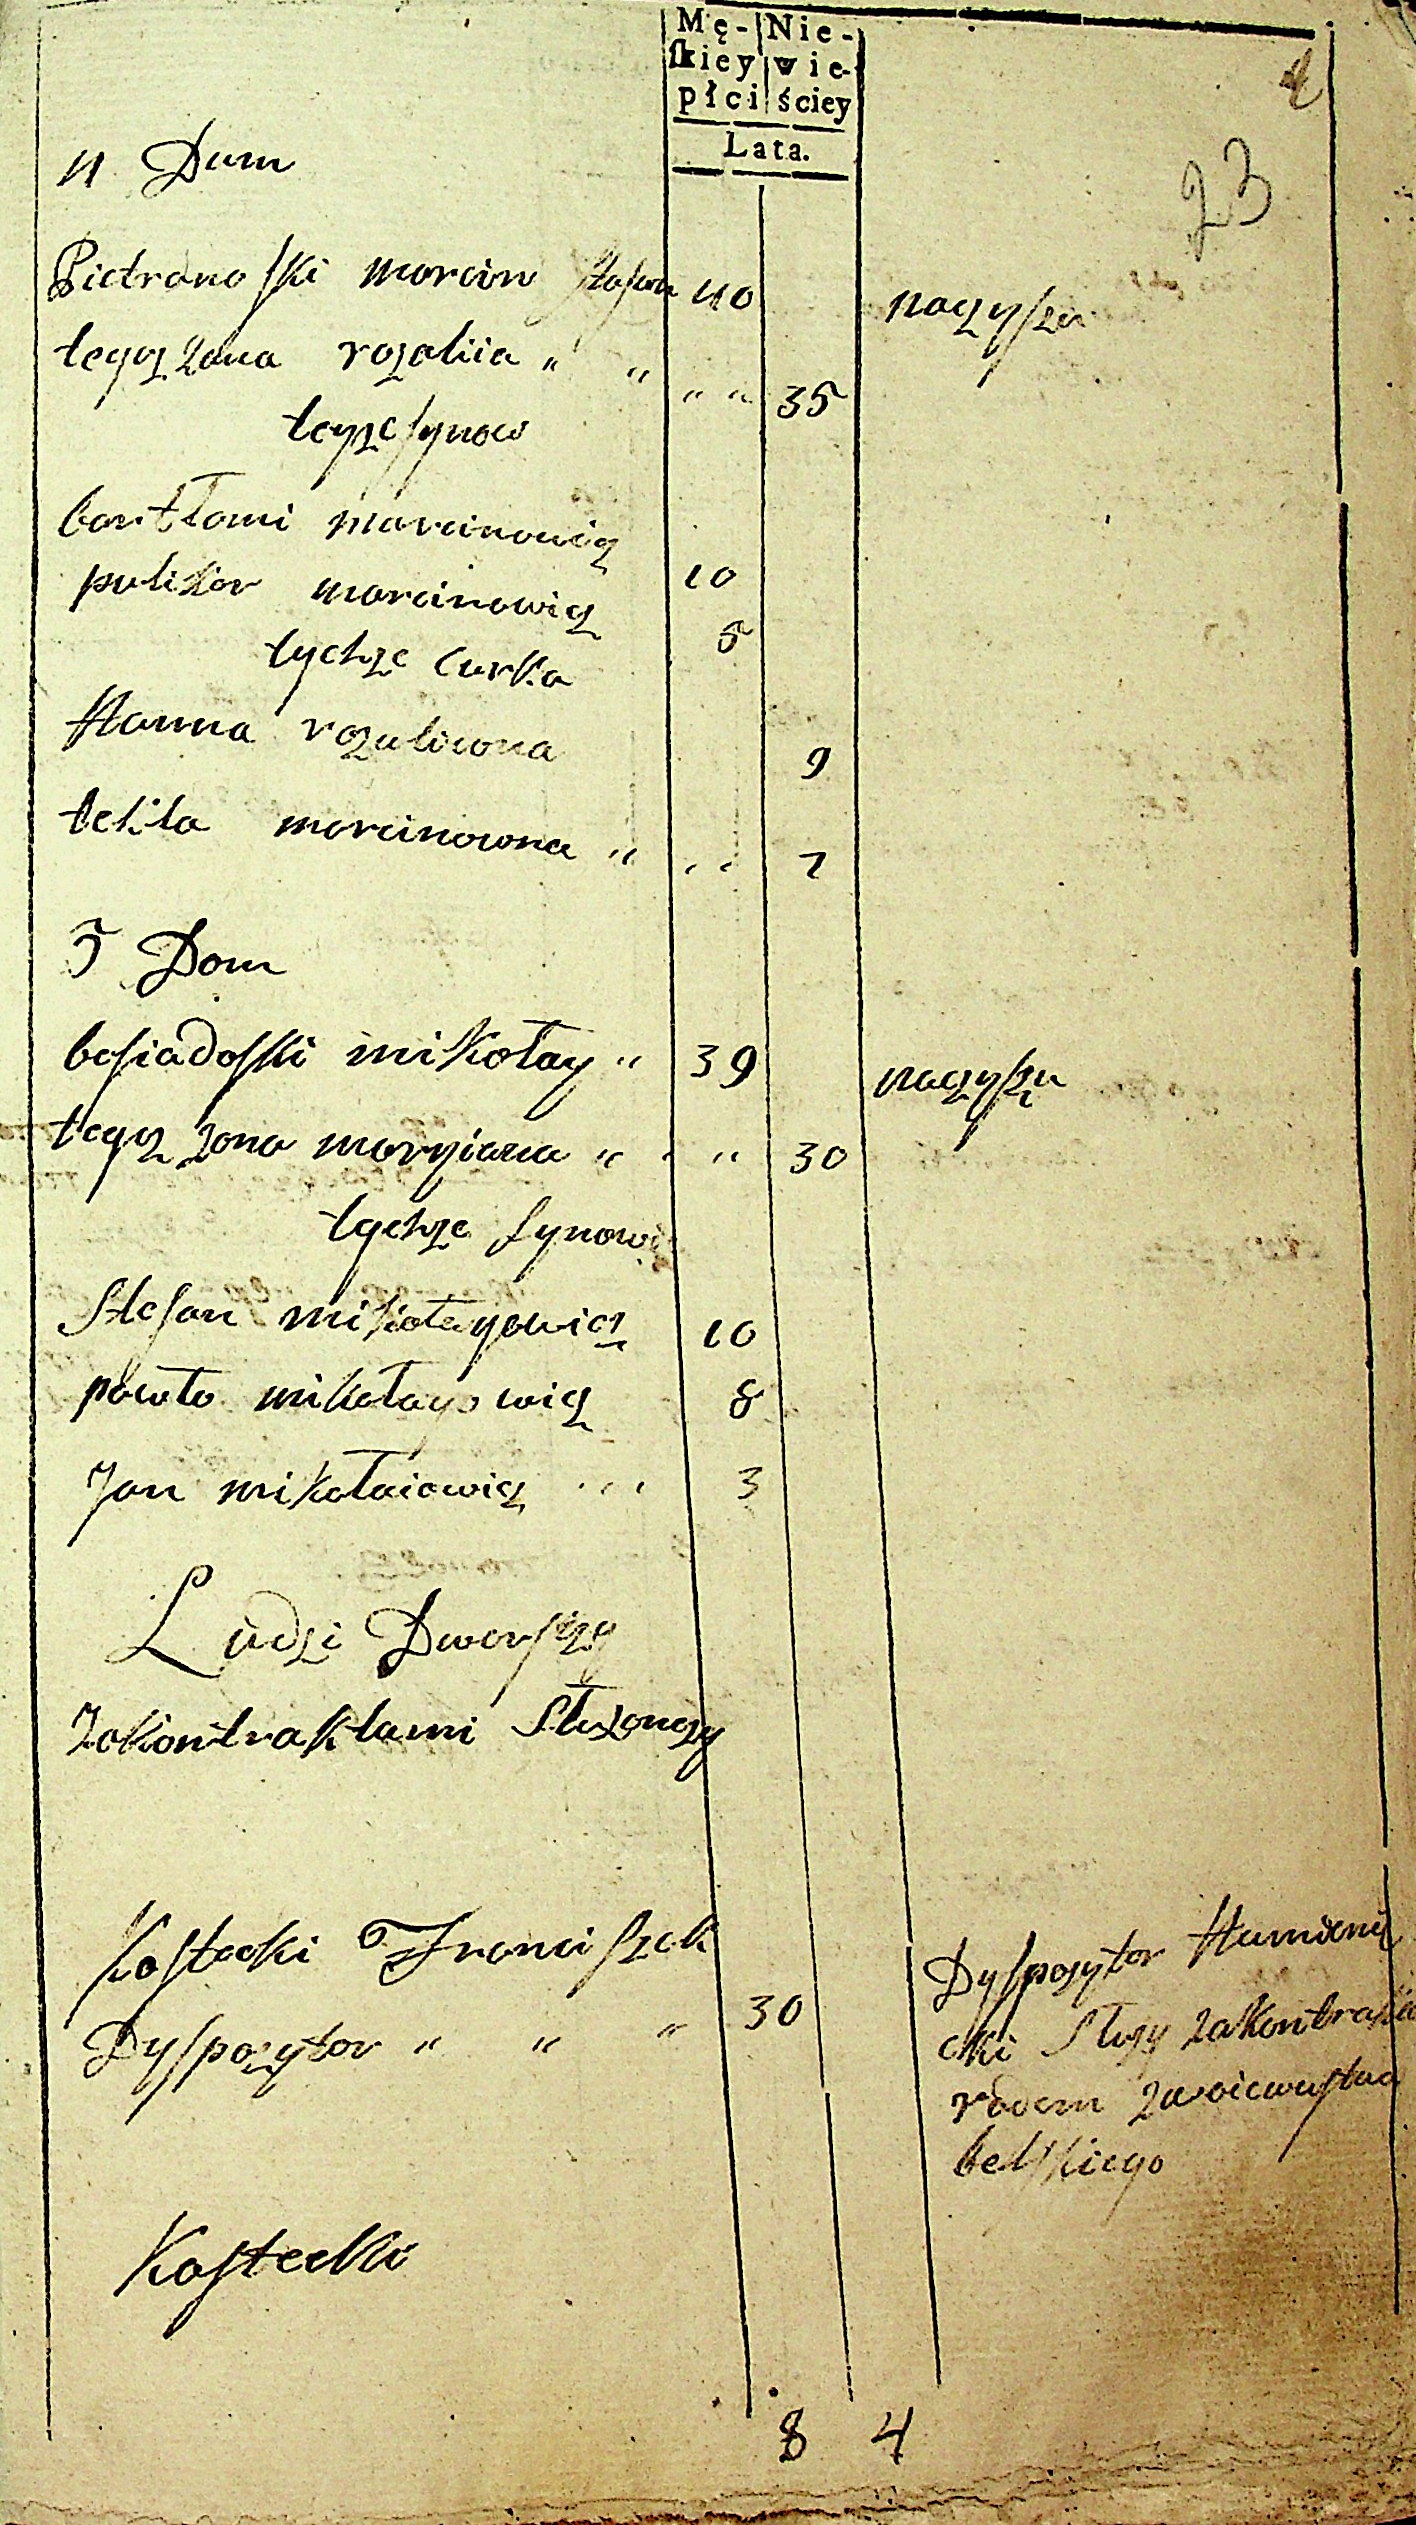 Mę- Nie-
ſkiey wie-
płci ściey
Lata.
4
23
4 Dum
Pietranoſki marcin 40 naczyſzu
tegoz zona rozaliia " " " " 35
teyze ſynow
bartłomi marcinowicz 10
marcinowicz 5
tychze Curka
Hanna rozaliowna 9
tekla marcinowna " " " 7
5 Dom
beſiadoſki mikołay " 39 naczyſzu
tegoz zona maryianna " " " 30
tychze ſynowi
Stefan mikołayowicz 10
pawło mikołayowicz 8
Jan mikołaiowicz " " 3
Ludzi Dworſzy
Zakontraktami Słuzonczy
Koſtecki Franciſzek
Dyſpozytor " " " 30
Dyſpozytor Humieni
cki Słuzy zakontrakte
rodem zwoiewuſtwa
bełſkiego
Koſtecki
8 4